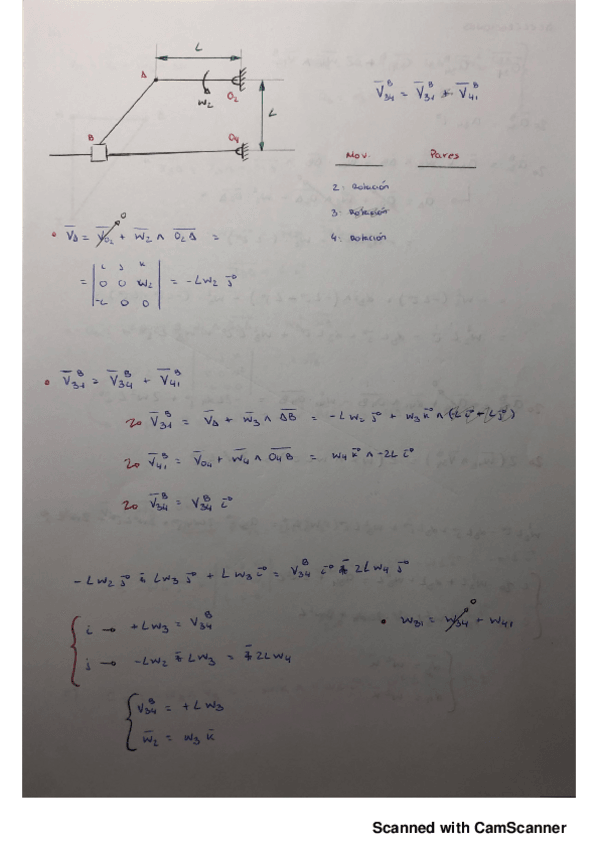 L
A
O₂
W₂
L
B
O₄
V̄₃₄ᴮ = V̄₃₁ᴮ + V̄₄₁ᴮ
Mov. Pares
2: Rotación
3: Rotación
4: Rotación
• V̄_A = V̄_O₂ + W̄₂ ∧ O₂A =
0
= | i j k | = -LW₂ j
| 0 0 W₂ |
| -L 0 0 |
• V̄₃₁ᴮ = V̄₃₄ᴮ + V̄₄₁ᴮ
V̄₃₁ᴮ = V̄_A + W̄₃ ∧ AB = -LW₂ j + W₃ k ∧ (-L i - L j)
V̄₄₁ᴮ = V̄_O₄ + W̄₄ ∧ O₄B = W₄ k ∧ -2L i
V̄₃₄ᴮ = V̄₃₄ᴮ i
-LW₂ j - LW₃ j + LW₃ i = V₃₄ᴮ i - 2LW₄ j
i → +LW₃ = V₃₄ᴮ
j → -LW₂ - LW₃ = - 2LW₄
• W₃₁ = W₃₄ + W₄₁
0
V₃₄ᴮ = +LW₃
W̄₂ = W₃ k
Scanned with CamScanner